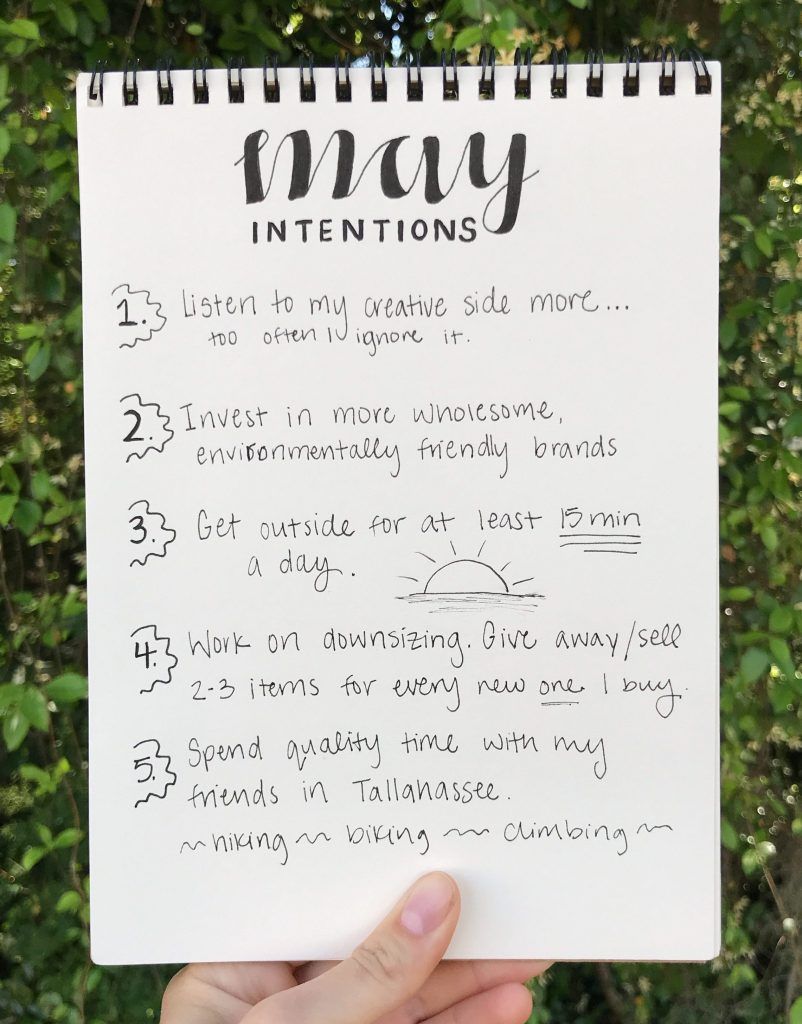 may
INTENTIONS
1. Listen to my creative side more...
too often I ignore it.
2. Invest in more wholesome,
environmentally friendly brands
3. Get outside for at least 15 min
a day.
4. Work on downsizing. Give away/sell
2-3 items for every new one I buy.
5. Spend quality time with my
friends in Tallahassee.
~hiking~ biking ~ climbing~